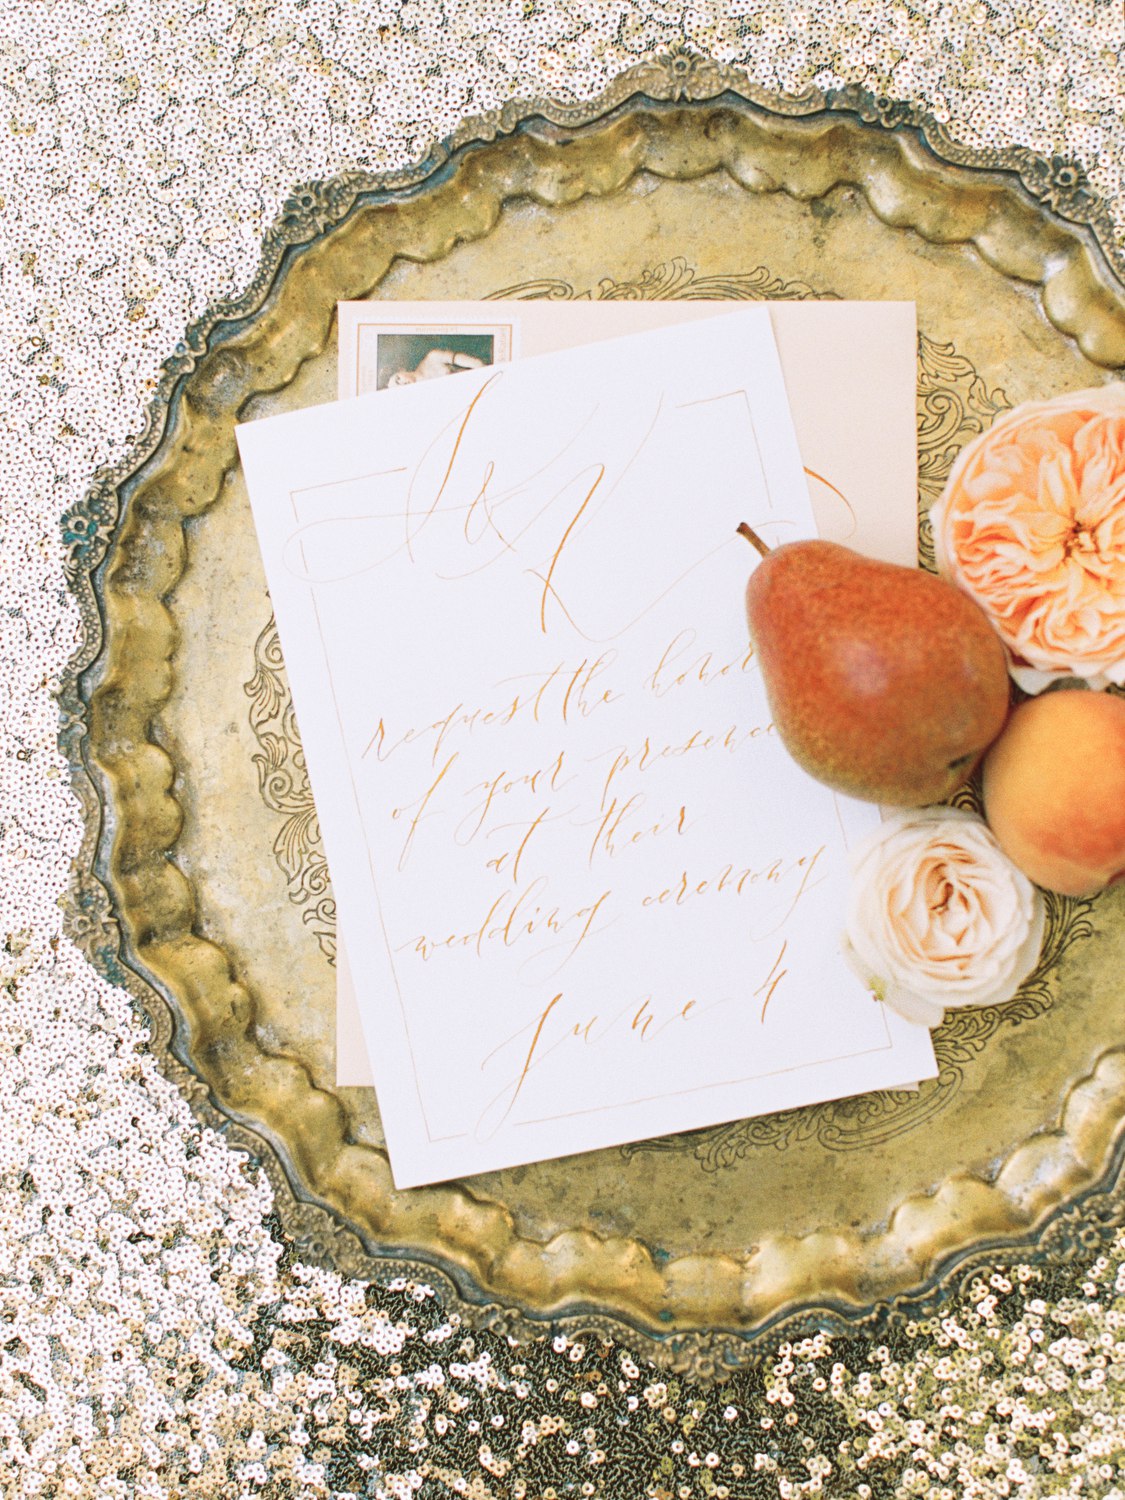 &
request the honor
of your presence
at their
wedding ceremony
June 4